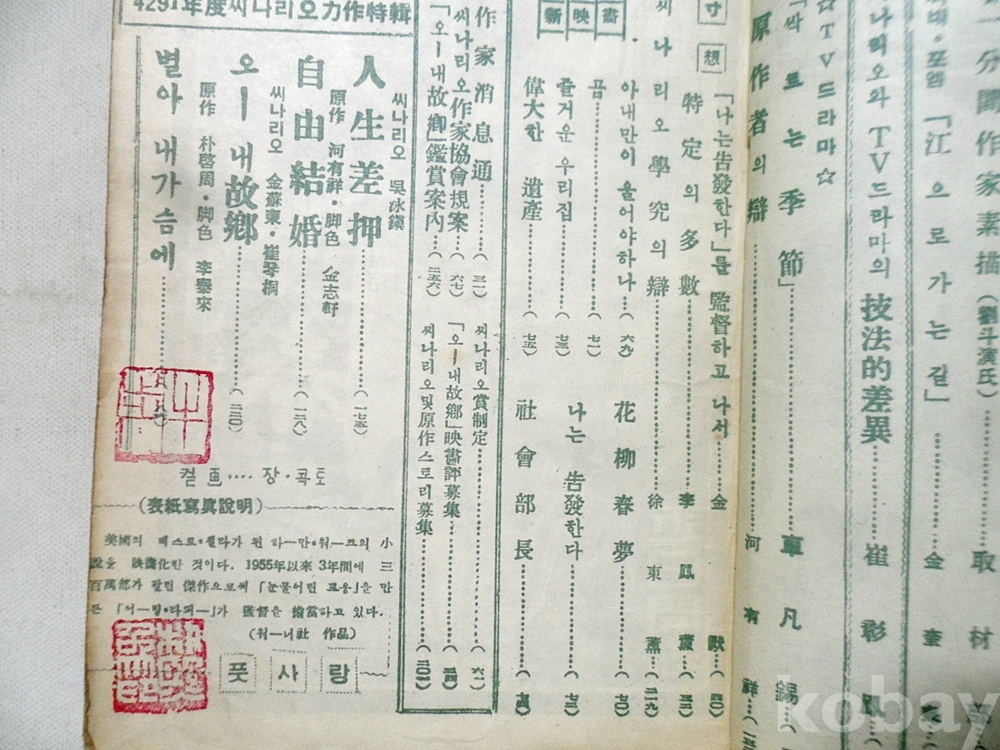 一分間作家素描(劉斗演氏)‥‥取材
포엠「江으로가는길」‥‥金奎
나리오와TV드라마의技法的差異‥‥崔彰鳳
☆TV드라마☆
「싹트는季節」‥‥車凡錫
原作者의辯‥‥河有祥
寸想
「나는告發한다」를監督하고나서‥‥金默(四〇)
特定의多數‥‥李鳳
씨나리오學究의辯‥‥徐東薰
新映畵
아내만이울어야하나‥‥(六九)
꿈‥‥(七一)
즐거운우리집‥‥(七三)
偉大한遺産‥‥(七五)
花柳春夢‥‥(七〇)
나는告發한다‥‥(七三)
社會部長‥‥(七四)
作家消息通‥‥(三一)
씨나리오作家協會規案‥‥(六七)
「오ー내故鄕」鑑賞案內‥‥(二五六)
씨나리오賞制定‥‥(六一)
「오ー내故鄕」映畵評募集
씨나리오및原作스토리募集
4291年度씨나리오力作特輯
人生差押‥‥(一七五)
씨나리오 吳泳鎭
自由結婚‥‥(一三八)
原作 河有祥・脚色 金志軒
오ー내故鄕‥‥(二二〇)
씨나리오 金蘇東・崔琴桐
별아 내가슴에
原作 朴啓周・脚色 李泰來
컽 画‥‥장・콕토
(表紙寫眞說明)
美國의 베스트・셀라가 된 하ー만・워ー크의 小
說을 映畵化한 것이다. 1955年以來 3年間에 三
百萬部가 팔린 傑作으로써 「눈물어린 포옹」을 만
든 「어ー빙・라퍼ー」가 監督을 擔當하고 있다.
(워ー너社 作品)
풋사랑
kobay